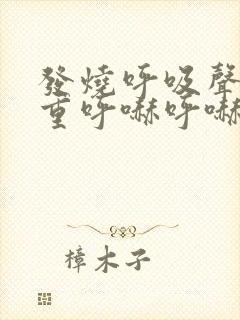 發燒呼吸聲
重呼嚇呼嚇
樟木子